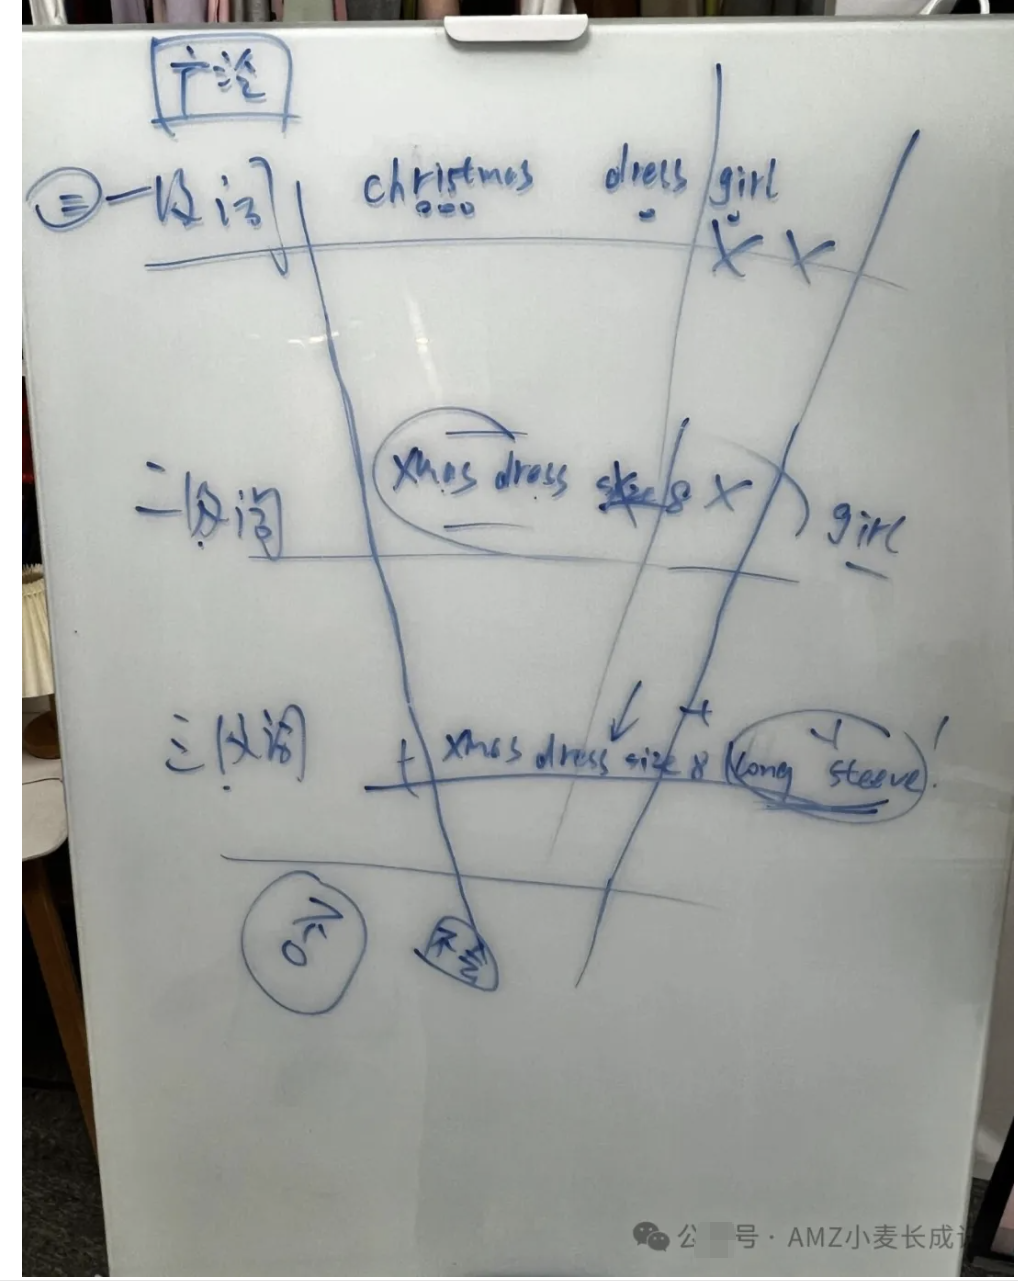 三 一级词 christmas dress girl
X X
二级词 xmas dress size 8 X girl
三级词 xmas dress size 8 long sleeve
公 号 · AMZ小麦长成记